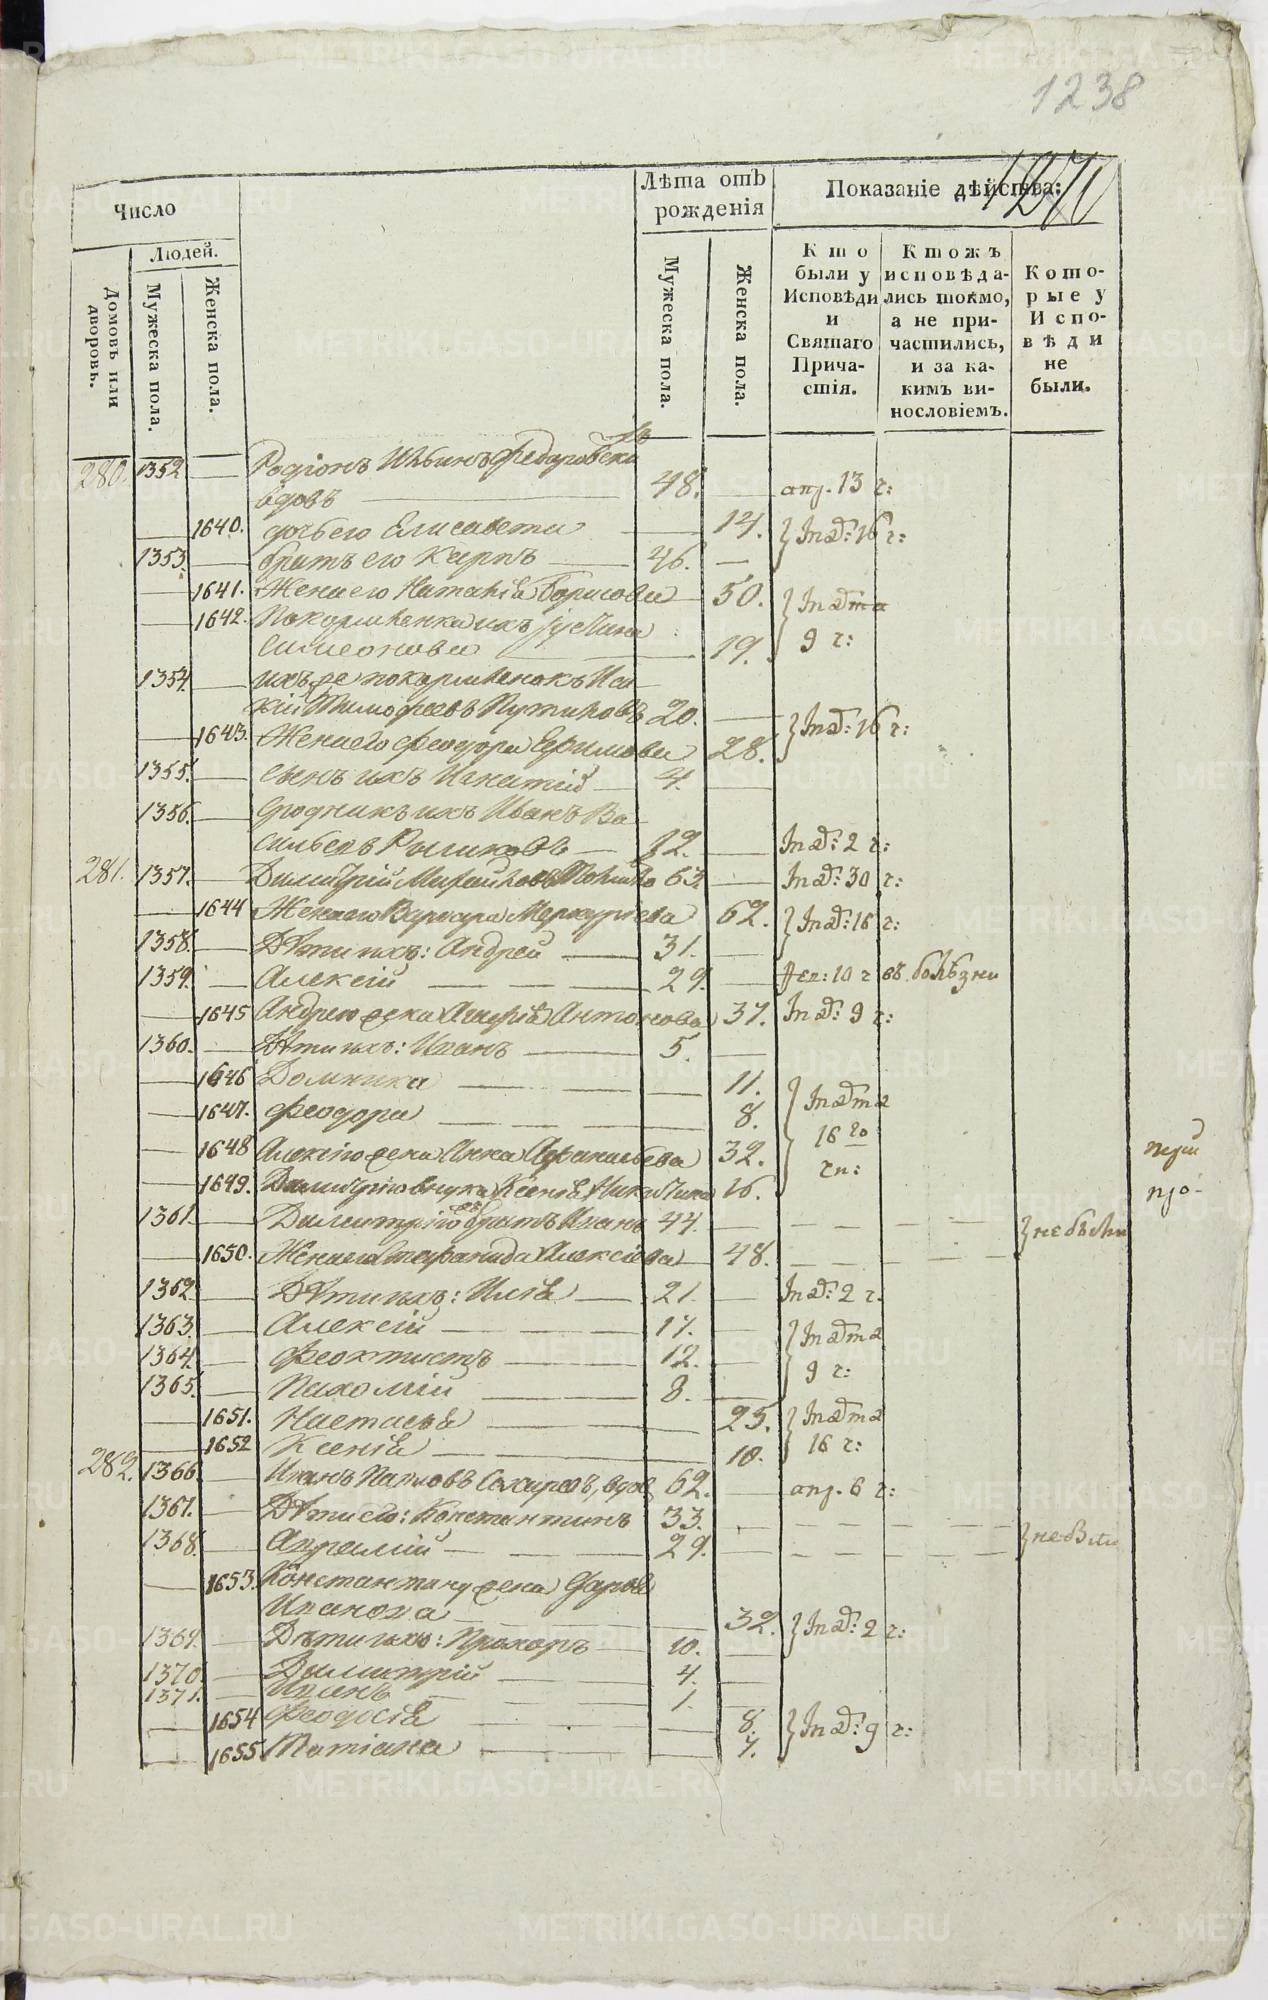 1238
1270
Число
Людей.
Домовъ или дворовъ.
Мужеска пола.
Женска пола.
Лѣта отъ рожденія
Мужеска пола.
Женска пола.
Показаніе дѣйства:
Кто были у Исповѣди и Святаго Причастія.
Ктожъ исповѣдались токмо, а не причастились, и за каким винословіемъ.
Которые у Исповѣди не были.
280. 1352 — Родіонъ Ильинъ
вдовъ — 48. — апр. 13 ч:
— 1640. дочь его Елисавета — 14. } Іп d: 16 ч:
1353. — братъ его Карпъ — 46. —
— 1641. Жена его Наталія Борисова — 50. } Іп dта
— 1642. Покормленка ихъ Іустина
Симеонова — 19. 9 ч:
1354. — ихъ же покормленокъ Иса
кій Тимофеевъ 20. — } Іп d: 16 ч:
— 1643. Жена его Феодора Ефимова 28.
1355. — сынъ ихъ Игнатій — 4. —
1356. — Сродникъ ихъ Иванъ Ва
сильевъ — 12. — Іп d: 2 ч:
281. 1357. — Димитрій 63. — Іп d: 30 ч:
— 1644 Жена его Варвара Меркуріева 62. } Іп d: 16 ч:
1358. — Дѣти ихъ: Андрей — 31. —
1359. — Алексій — — — 29. — 10 ч въ болѣзни
— 1645 Андрею жена Антонова 37. Іп d: 9 ч:
1360. — Дѣти ихъ: Иванъ — 5. —
— 1646 Домника — — — 11. } Іп dта
— 1647. Феодора — — — 8.
16 го
— 1648 Алексію жена Анна Афанасьева 32. чи:
— 1649. Димитрію внука Ксенія Никитина 16.
1361. — Димитрію братъ Иванъ 44. — — — — } не были
— 1650. Жена его Стефанида Алексіева — 48. — — — —
1362. — Дѣти ихъ: Илія — 21. — Іп d: 2 ч.
1363. — Алексій — — — 17. — } Іп dта
1364. — Феоктистъ — 12. — 9 ч:
1365. — Пахомій — 8. —
— 1651. Настасья — — 25. } Іп dта
— 1652 Ксенія — — 10. 16 ч:
282. 1366. — Иванъ Павловъ Сахаровъ, вдов 62. — апр. 6 ч:
1367. — Дѣти его: Константинъ 33. — — — — } не были
1368. — — — — 29. — — — —
— 1653. Константину жена Дарья
Иванова — 32. } Іп d: 2 ч:
1369. — Дѣти ихъ: Прохоръ — 10. —
1370. — Димитрій — 4. —
1371. — — 1.
— 1654 Феодосія — — 8. } Іп d: 9 ч:
— 1655 Татіана — — 7.
METRIKI.GASO-URAL.RU